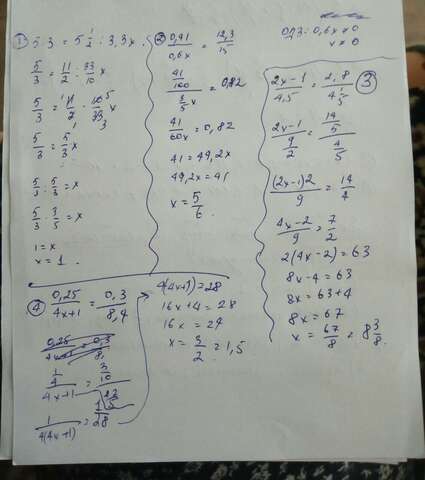 1) 5:3 = 5 1/2 : 3,3x.
5/3 = 11/2 : 33/10 x
5/3 = 11/2 · 10/33 x
5/3 = 5/3 x
5/3 : 5/3 = x
5/3 · 3/5 = x
1 = x
x = 1.
2) 0,41/0,6x = 12,3/15
41/100 / 3/5 x = 0,82
41/60x = 0,82
41 = 49,2x
49,2x = 41
x = 5/6.
0,6x ≠ 0
x ≠ 0
3) 2x-1/4,5 = 2,8/4/5
2x-1 / 9/2 = 14/5 / 4/5
(2x-1)2/9 = 14/4
4x-2/9 = 7/2
2(4x-2) = 63
8x-4 = 63
8x = 63+4
8x = 67
x = 67/8 = 8 3/8.
4) 0,25/4x+1 = 0,3/8,4
1/4 / 4x+1 = 3/10
1/4(4x+1) = 1/28
4(4x+1) = 28
16x+4 = 28
16x = 24
x = 3/2 = 1,5